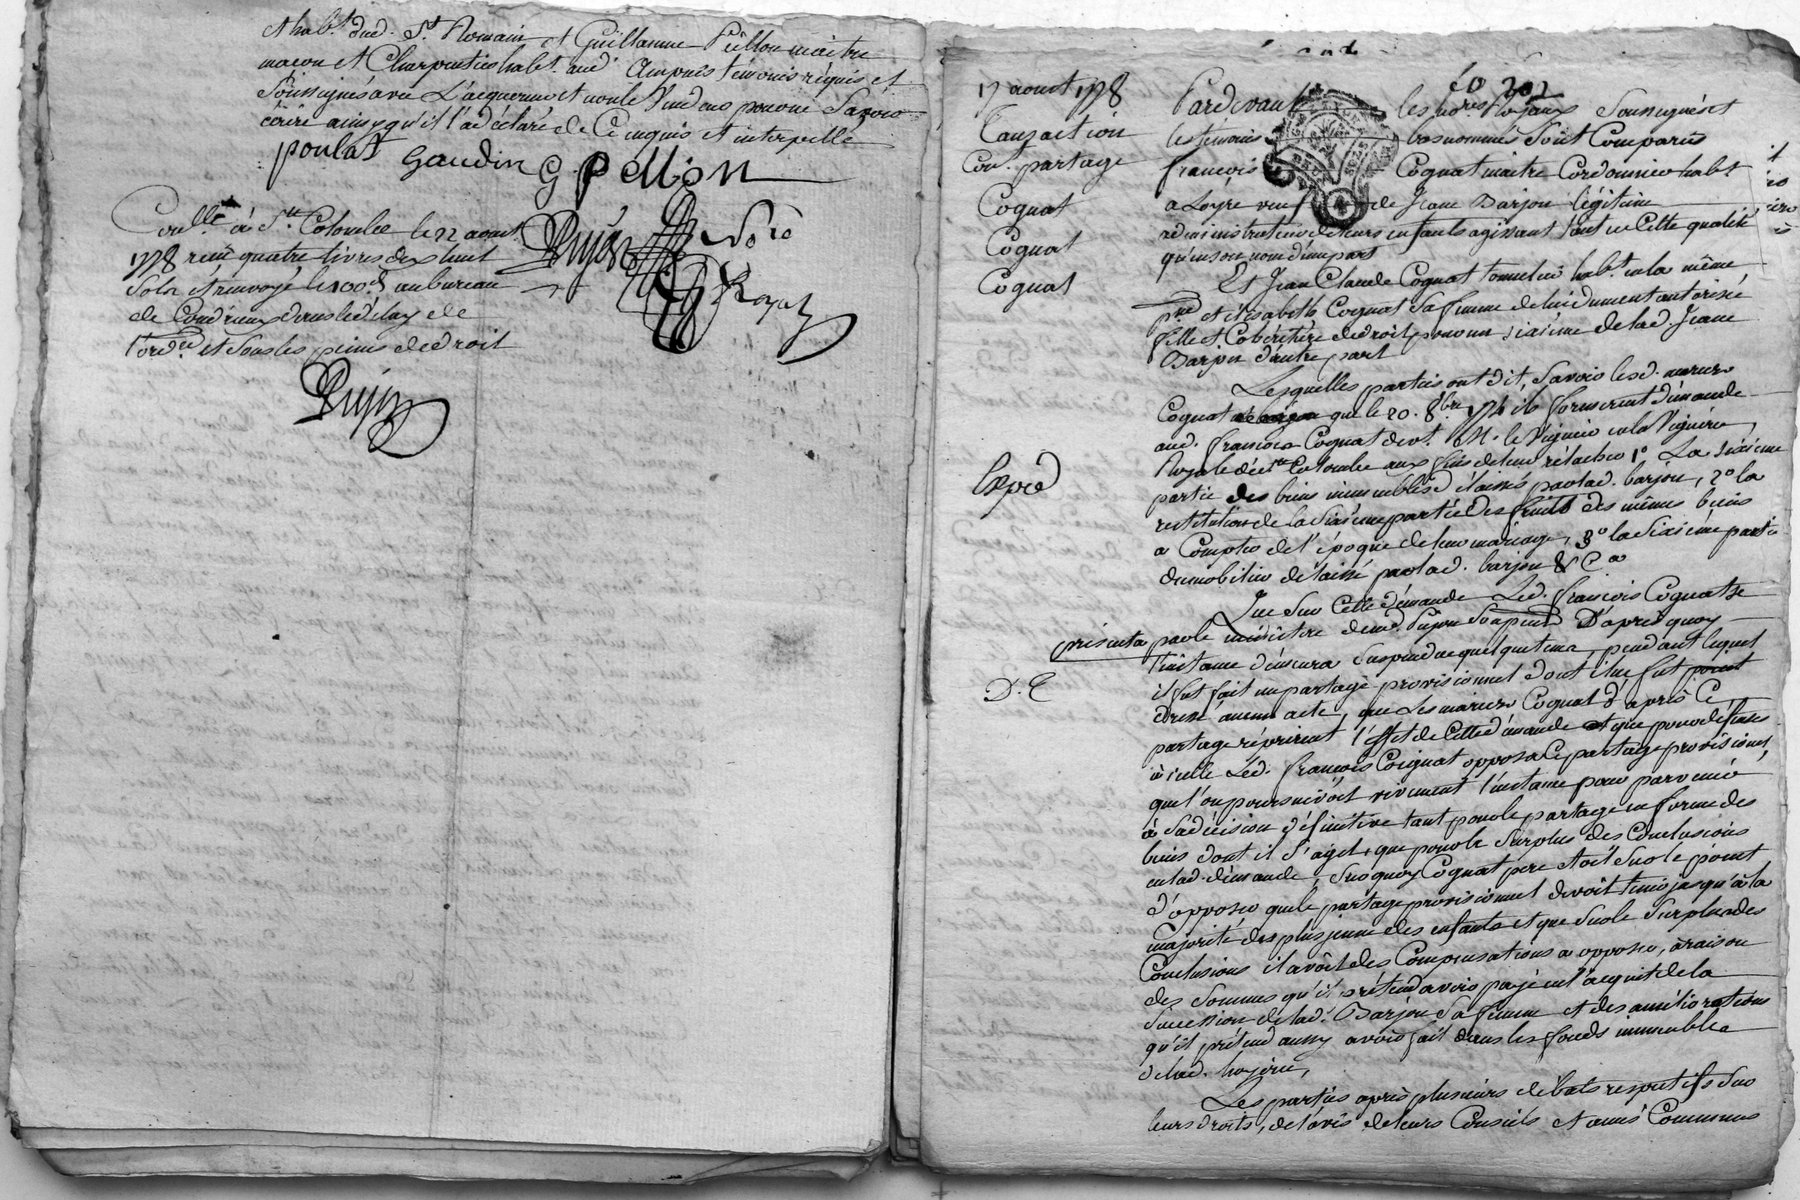 et hab.t dud. St Romain et Guillaume Pellon maitre
macon et Charpentier hab.t aud. Ampuis temoins requis et
soussignés avec L'acquereur et non le Vendeur pour ne Savoir
écrire ainsy qu'il l'a déclaré de Ce enquis et interpellé
poulat Gaudin G pellion
Conllé à Ste Colombe le 22 aout
1778 reçu quatre livres dix huit
Sols et renvoyé le 100e au bureau
de Condrieux dans le délay de
l'ordce et sous les peines de droit
Dujon
17 aoust 1778
Transaction
Cont. partage
Cognat
Cognat
Cognat
Expéd
D. E
Pardevant les no.res Royaux Soussignés et
les témoins bas nommés Sont Comparus
françois Cognat maitre Cordonnier hab.t
a Loyre veuf de Jeane Barjon légitime
administrateur de leurs enfants agissant tant en Cette qualité
qu'en son nom d'une part
Et Jean Claude Cognat tonnelier hab.t en la même
psse et elisabeth Cognat Sa femme de lui dument autorisée
fille et Cohéritière de droit pour un sixième de lad. Jeane
Barjon d'autre part
Lesquelles parties ont dit, Savoir lesd. mariés
Cognat que le 20. 8bre 1774 ils formerent demande
aud. françois Cognat devt. M. le Viguier en la Viguerie
Royale de Ste Colombe aux fins de leur relacher 1° La Sixieme
partie des biens immeubles délaissés par lad. barjon, 2° la
restitution de la Sixième partie des fruits des mêmes biens
a Compter de l'époque de leur mariage, 3° la Sixieme partie
du mobilier délaissé par lad. barjon & Ca
Que Sur Cette demande Led. françois Cognat se
présenta par le ministère de me. Dujon D'après quoy
l'instance demeura Suspendue quelque tems, pendant lequel
il fut fait un partage provisionnel dont il ne fut point
dressé aucun acte, que Les mariés Cognat d'après Ce
partage réprirent l'effet de Cette demande et que pour défenses
à icelle Led. françois Coignat opposa Ce partage provisionnel,
que l'on poursuivoit vivement l'instance pour parvenir
à Sa décision définitive tant pour le partage en forme des
biens dont il S'agit, que pour le Surplus des Conclusions
en lad. demande, Sur quoy Cognat pere étoit Sur le point
d'opposer que le partage provisionnel devoit tenir jusqu'à la
majorité des plus jeune des enfants et que Sur le Surplus des
Conclusions il avoit des Compensations a opposer, à raison
des Sommes qu'il prétend avoir payé en l'acquit de la
Succession de lad. Barjon Sa femme et des améliorations
qu'il prétend aussy avoir fait dans les fonds immeubles
de lad. hoyrie,
Les parties après plusieurs débats respectifs Sur
leurs droits, de l'avis de leurs Conseils et amis Communs